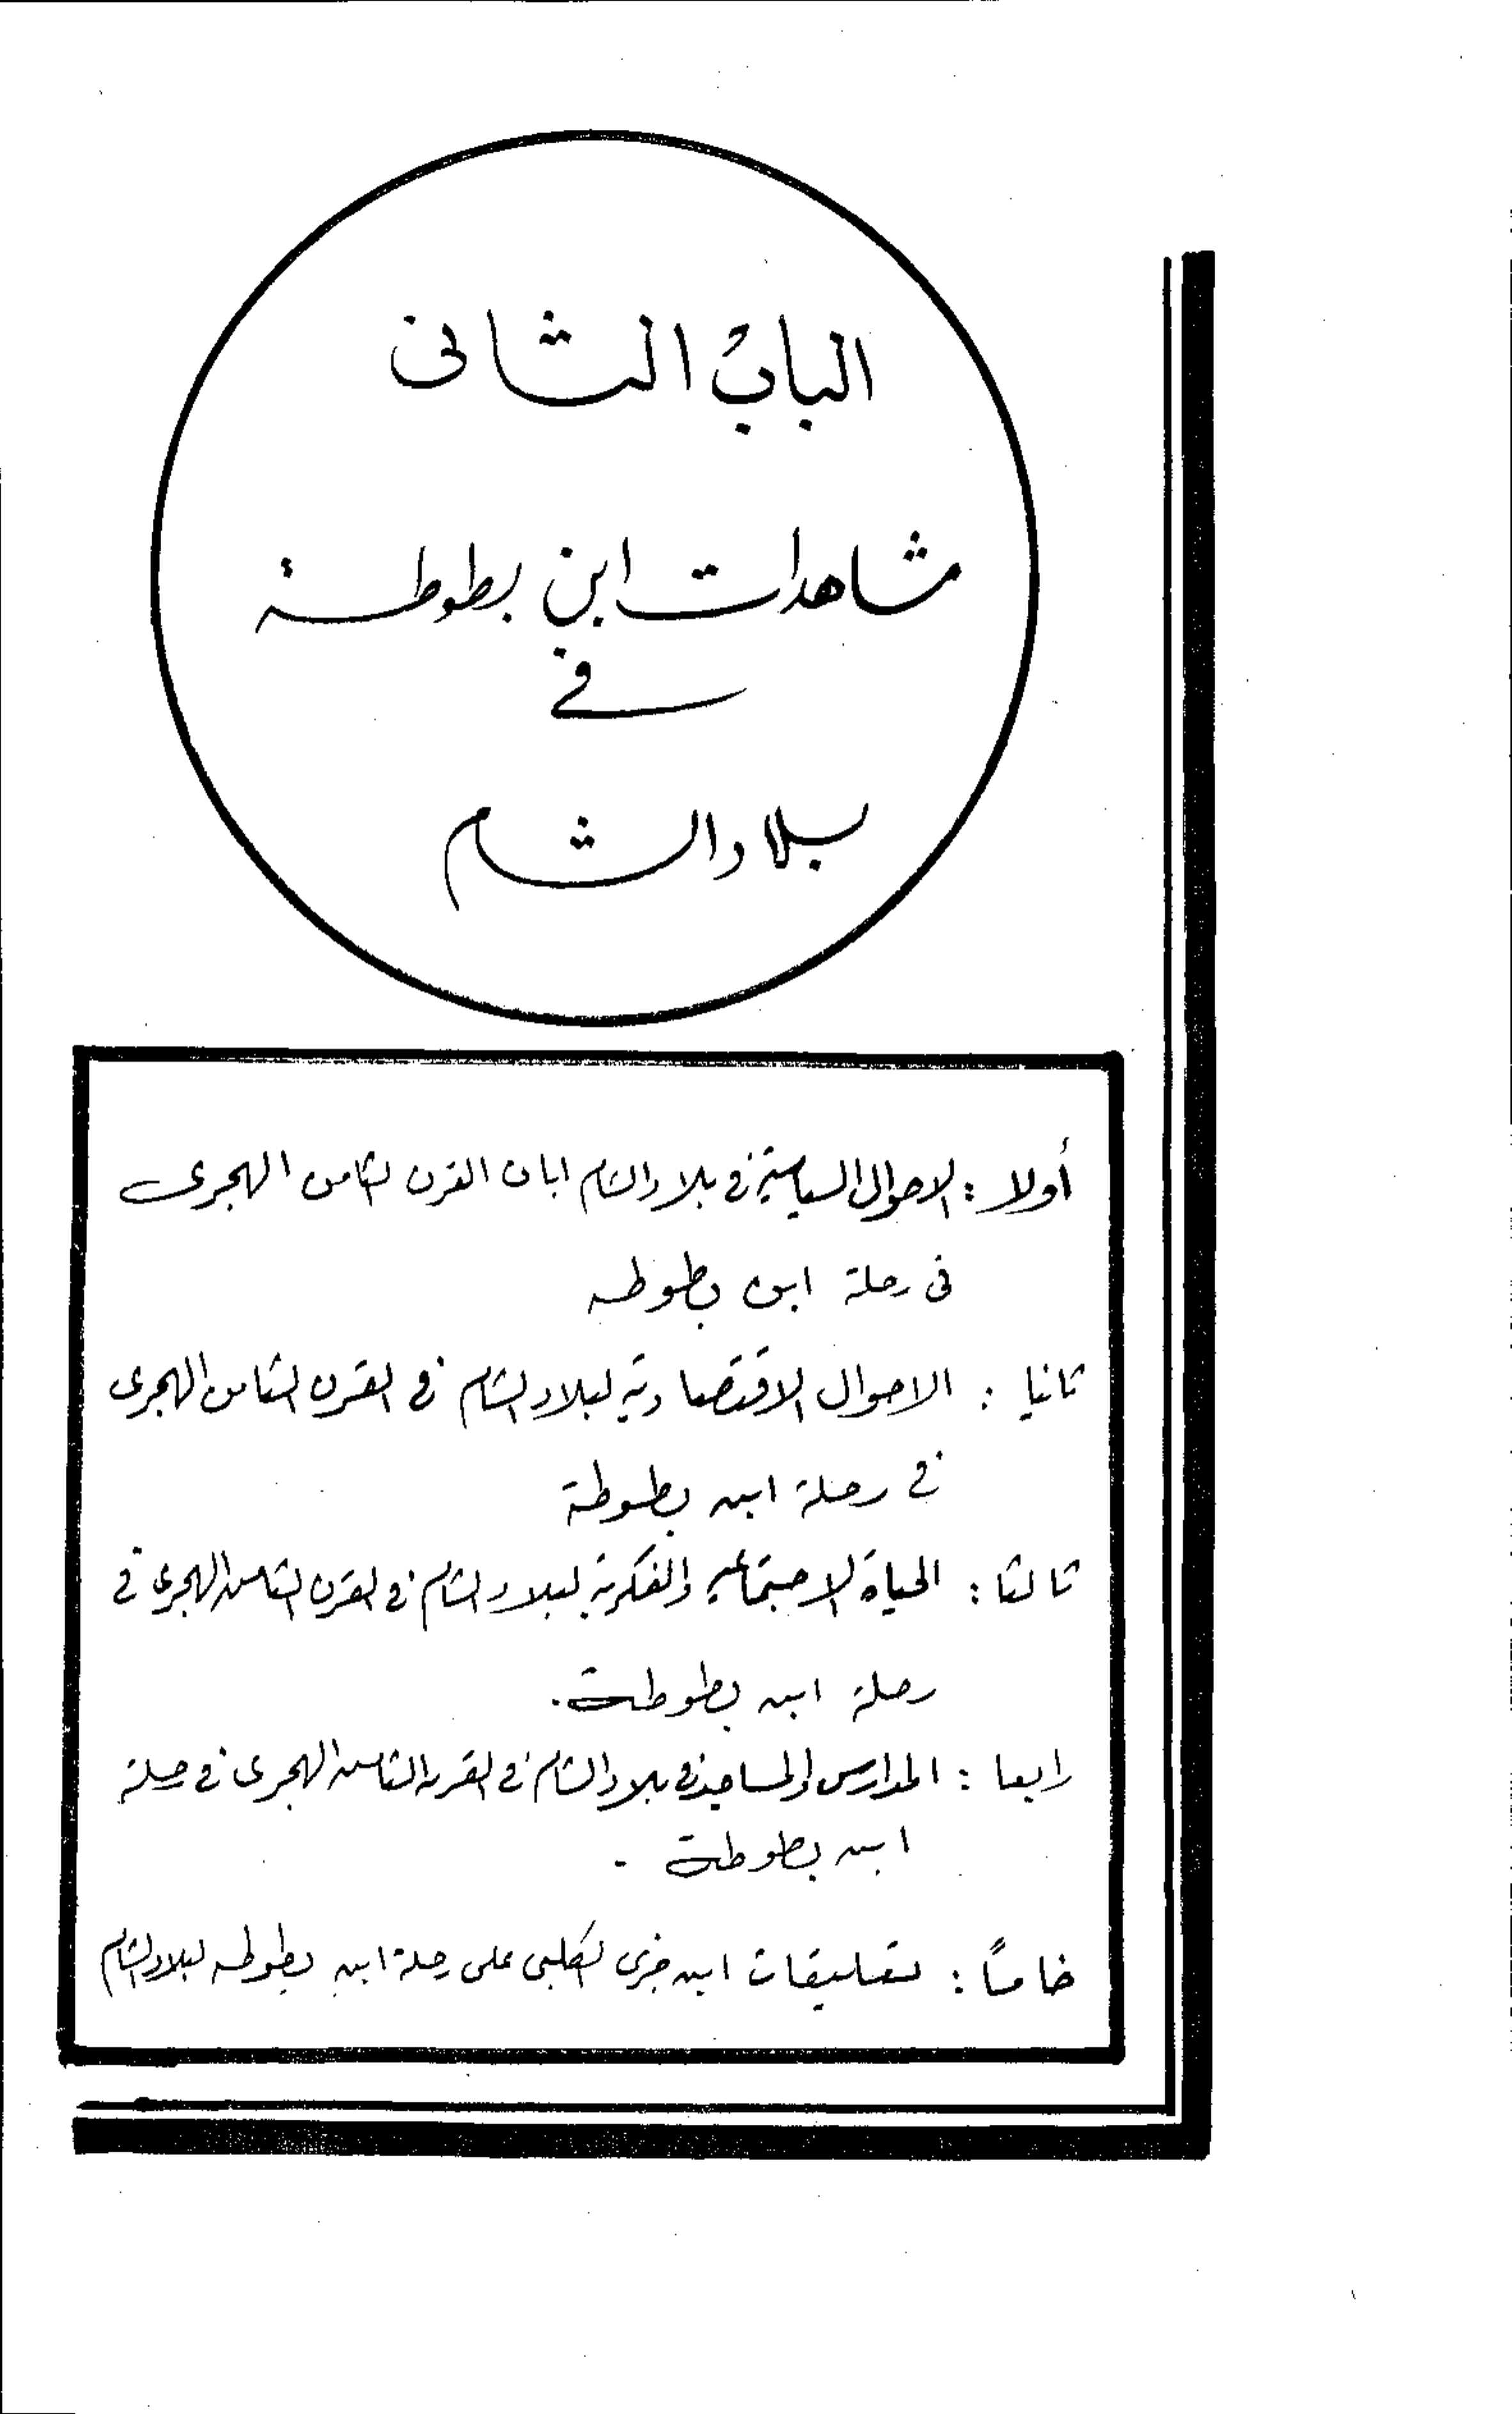 الباب الثاني
مشاهدات ابن بطوطة
في
بلاد الشام
أولا : الاحوال السياسية في بلاد الشام ابان القرن الثامن الهجرى
فى رحلة ابن بطوطه
ثانيا : الاحوال الاقتصادية لبلاد الشام في القرن الثامن الهجرى
في رحلة ابن بطوطة
ثالثا : الحياة الاجتماعية والفكرية لبلاد الشام في القرن الثامن الهجرى فى
رحلة ابن بطوطة .
رابعا : المدارس والمساجد في بلاد الشام في القرن الثامن الهجرى في رحلة
ابن بطوطة .
خامساً : تعليقات ابن جزى الكلبى على رحلة ابن بطوطه لبلاد الشام